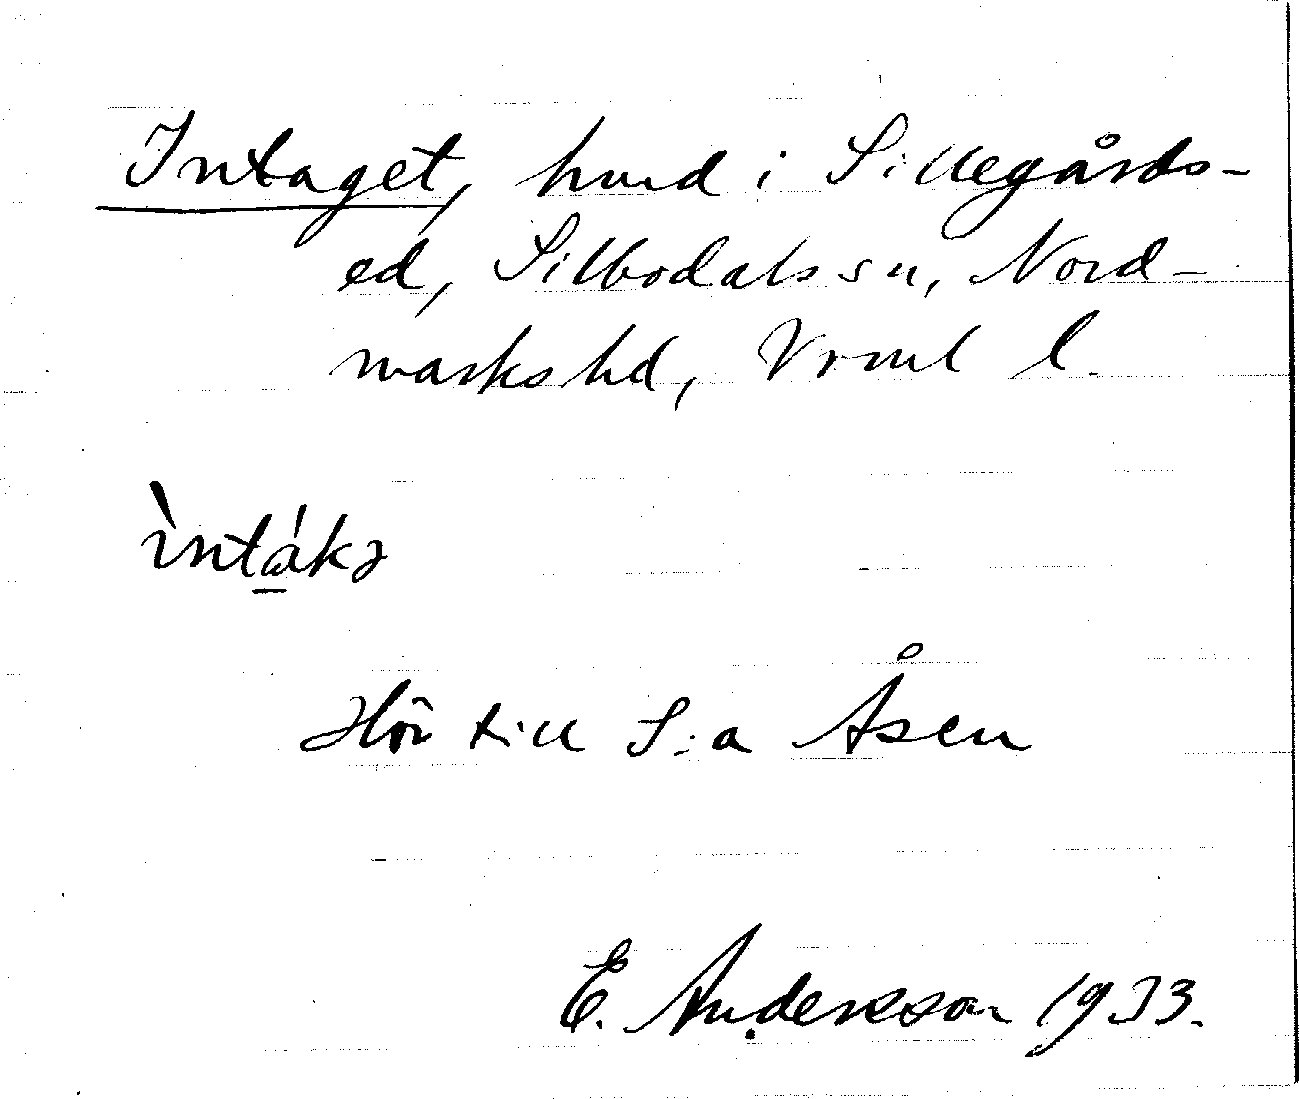 Intaget, hmd i Sillegårds-
ed, Silbodals sn, Nord-
marks hd, Vrml l.
ìntákə
Hör till S:a Åsen
E. Andersson 1933.